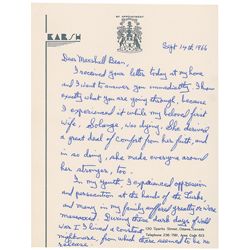 KARSH
BY APPOINTMENT
Sept 14th 1966
Dear Marshall Bean:
I received your letter today at my home
and I want to answer you immediately. I know
exactly what you are going through, because
I experienced it while my beloved first
wife, Solange, was dying. She derived
a great deal of comfort from her faith, and
in so doing, she made everyone around
her stronger, too.
In my youth I experienced oppression
and persecution at the hands of the Turks,
and many in my family suffered greatly or were
massacred. During those dark days of World
War I I lived a constant
nightmare, from which there seemed to be no
release.
130 Sparks Street, Ottawa, Canada
Telephone 236-7181, Area Code 613